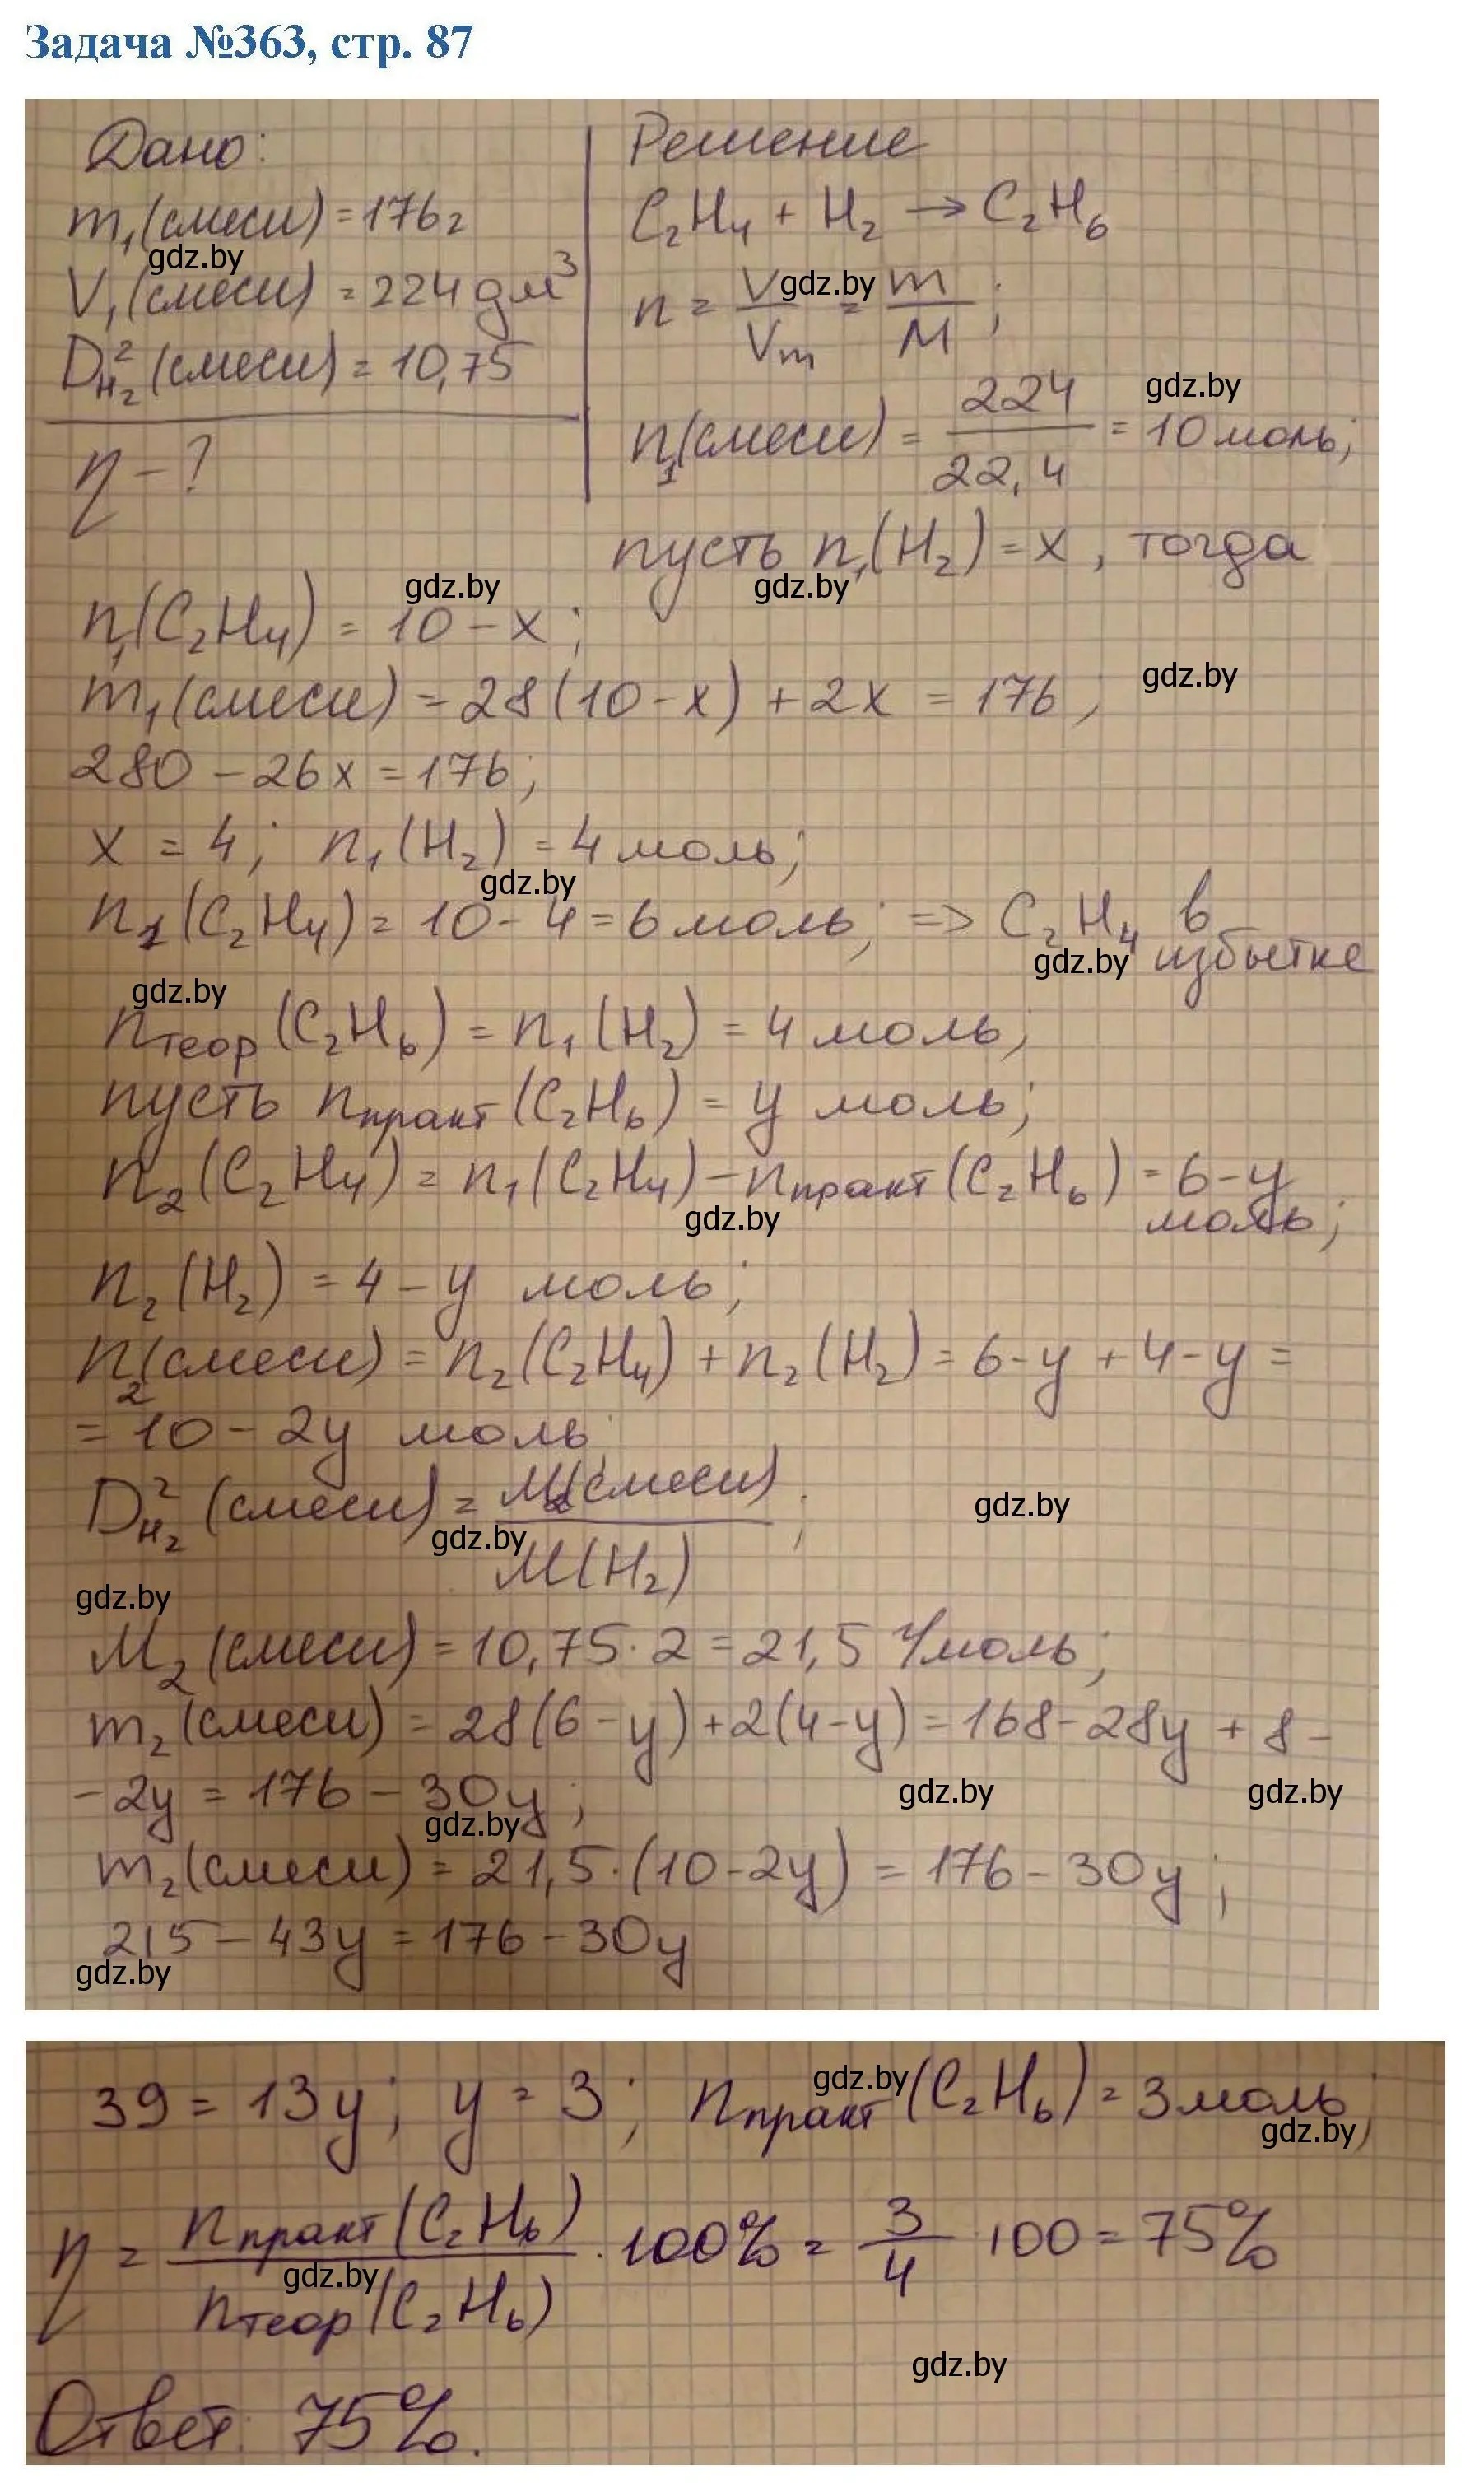 Задача №363, стр. 87
Дано:
m₁(смеси) = 176 г
gdz.by
V₁(смеси) = 224 дм³
D²H₂(смеси) = 10,75
η - ?
Решение
C₂H₄ + H₂ → C₂H₆
gdz.by
n = V/Vm = m/M;
gdz.by
n₁(смеси) = 224/22,4 = 10 моль;
пусть n₁(H₂) = x, тогда
gdz.by gdz.by
n₁(C₂H₄) = 10 - x;
m₁(смеси) = 28(10-x) + 2x = 176; gdz.by
280 - 26x = 176;
x = 4; n₁(H₂) = 4 моль;
gdz.by
n₁(C₂H₄) = 10 - 4 = 6 моль; => C₂H₄ в
gdz.by избытке
gdz.by
nтеор(C₂H₆) = n₁(H₂) = 4 моль;
пусть nпракт(C₂H₆) = y моль;
n₂(C₂H₄) = n₁(C₂H₄) - nпракт(C₂H₆) = 6-y
gdz.by моль;
n₂(H₂) = 4 - y моль;
n₂(смеси) = n₂(C₂H₄) + n₂(H₂) = 6-y + 4-y =
= 10 - 2y моль
D²H₂(смеси) = M₂(смеси)/M(H₂); gdz.by
gdz.by
gdz.by
M₂(смеси) = 10,75·2 = 21,5 г/моль;
m₂(смеси) = 28(6-y)+2(4-y) = 168-28y + 8-
-2y = 176 - 30y; gdz.by gdz.by
gdz.by
m₂(смеси) = 21,5·(10-2y) = 176-30y;
215 - 43y = 176 - 30y
gdz.by
39 = 13y; y = 3; nпракт(C₂H₆) = 3 моль;
gdz.by
gdz.by
η = nпракт(C₂H₆)/nтеор(C₂H₆) · 100% = 3/4 · 100 = 75%
gdz.by
gdz.by
Ответ: 75%.